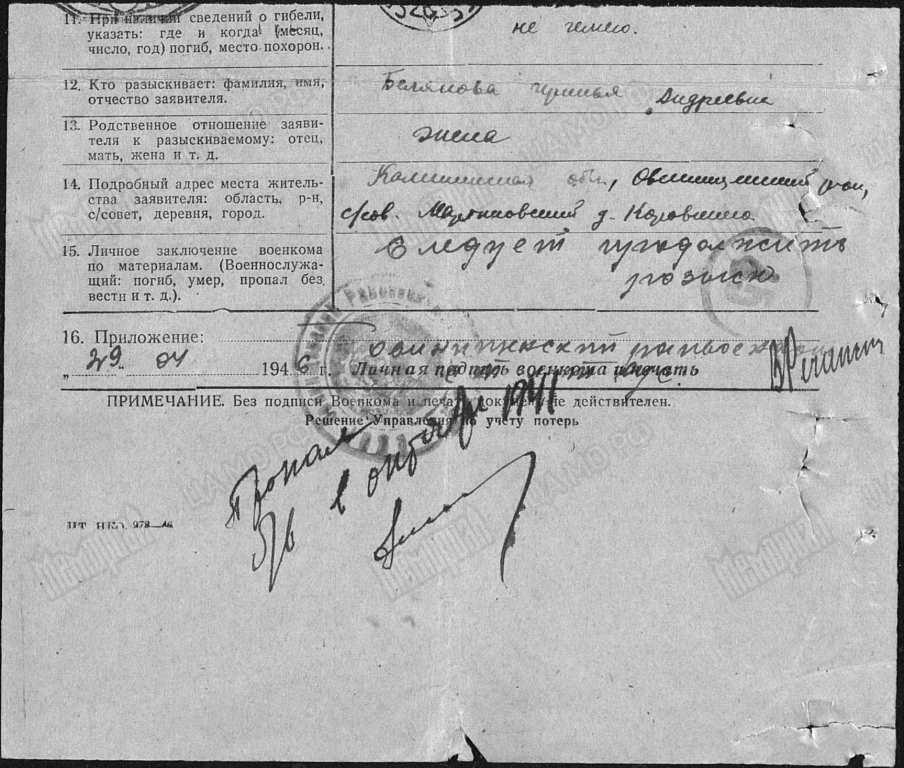 11. При наличии сведений о гибели,
указать: где и когда (месяц,
число, год) погиб, место похорон.
не имею.
12. Кто разыскивает: фамилия, имя,
отчество заявителя.
Белякова Андреевна
13. Родственное отношение заяви-
теля к разыскиваемому: отец,
мать, жена и т. д.
жена
14. Подробный адрес места житель-
ства заявителя: область, р-н,
с/совет, деревня, город.
Калининская обл, Овинищенский
с/сов. д. Коровкино
15. Личное заключение военкома
по материалам. (Военнослужа-
щий: погиб, умер, пропал без
вести и т. д.).
Следует продолжить
розыск
16. Приложение:
Овинищенский райвоенком
„29" 04 1946 г. Личная подпись военкома и печать
ПРИМЕЧАНИЕ. Без подписи Военкома и печати документ не действителен.
Решение Управления по учету потерь
Пропал
б/в в октябре 1941
ЦАМО РФ
Мемориал